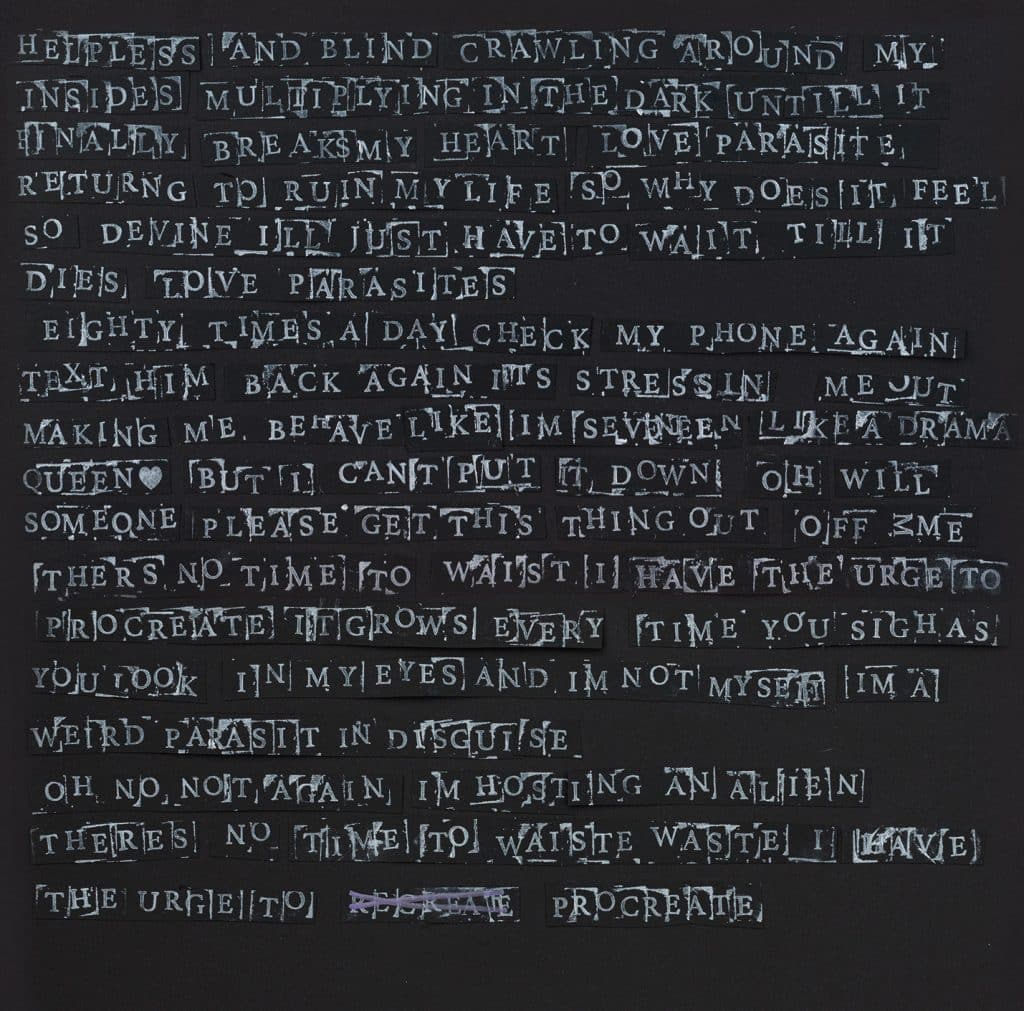 HELPLESS AND BLIND CRAWLING AROUND MY
INSIDES MULTIPLYING IN THE DARK UNTILL IT
FINALLY BREAKS MY HEART LOVE PARASITE
RETURNG TO RUIN MY LIFE SO WHY DOES IT FEEL
SO DEVINE ILL JUST HAVE TO WAIT TILL IT
DIES LOVE PARASITES
EIGHTY TIMES A DAY CHECK MY PHONE AGAIN
TEXT HIM BACK AGAIN ITS STRESSIN ME OUT
MAKING ME BEHAVE LIKE IM SEVNEEN LIKE A DRAMA
QUEEN♥ BUT I CANT PUT IT DOWN OH WILL
SOMEONE PLEASE GET THIS THING OUT OFF ME
THERS NO TIME TO WAIST I HAVE THE URGE TO
PROCREATE IT GROWS EVERY TIME YOU SIGH AS
YOU LOOK IN MY EYES AND IM NOT MYSELF IM A
WEIRD PARASIT IN DISGUISE
OH NO NOT AGAIN IM HOSTING AN ALIEN
THERES NO TIME TO WAISTE WASTE I HAVE
THE URGE TO RECREATE PROCREATE